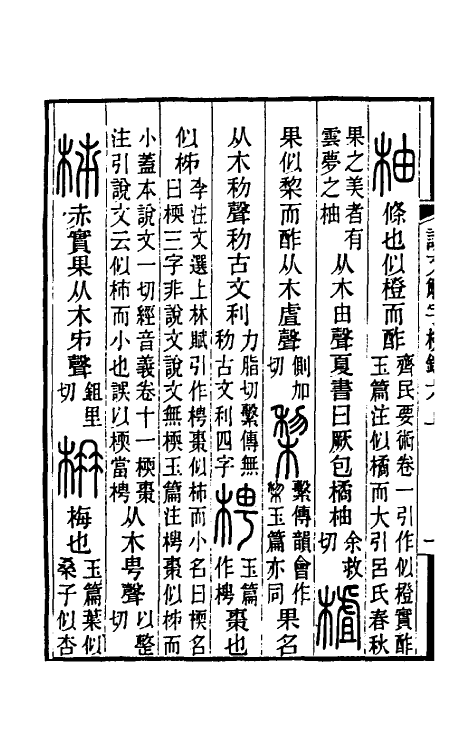 柚條也似橙而酢齊民要術卷一引作似橙實酢玉篇注似橘而大引呂氏春秋
果之美者有雲夢之柚从木由聲夏書曰厥包橘柚余救切樝
果似棃而酢从木虘聲側加切棃繫傳韻會作棃玉篇亦同果名
从木𥝢聲𥝢古文利力脂切繫傳無𥝢古文利四字梬玉篇作梬棗也
似柹李注文選上林賦引作梬棗似柿而小名曰㮕名曰㮕三字非說文說文無㮕玉篇注梬棗似柹而
小蓋本說文一切經音義卷十一㮕棗注引說文云似柿而小也誤以㮕當梬从木甹聲以整切
柹赤實果从木𠂔聲鉏里切枏梅也玉篇葉似桑子似杏